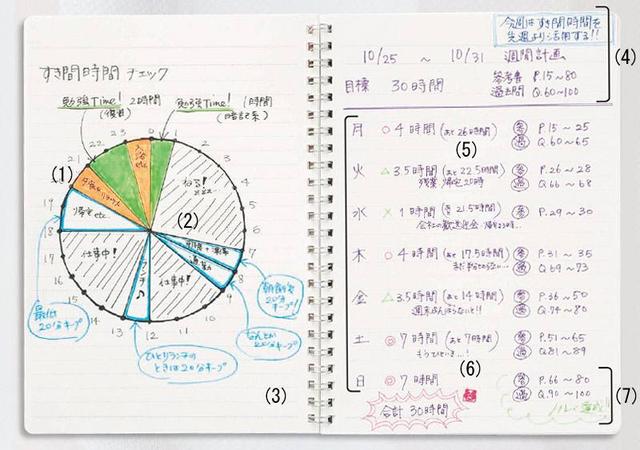 すき間時間チェック
勉強Time! 2時間
(復習)
勉強Time! (1時間)
(暗記系)
(1)
(2)
(3)
0
1
2
3
4
5
6
7
8
9
10
11
12
13
14
15
16
17
18
19
21
22
23
入浴etc
ねる!
帰宅etc.
仕事中!
ランチ♪
仕事中!
朝勉強20分キープ!
なんとか20分キープ
ひとりランチのときは20分キープ
最低20分キープ
今週はすき間時間を
先週より活用する!!
(4)
10/25 ~ 10/31 週間計画
目標 30時間
参考書 P.15~80
過去問 Q.60~100
月 ○ 4時間 (あと26時間) 参 P.15~25
過 Q.60~65
(5)
火 △ 3.5時間 (あと22.5時間) 参 P.26~28
残業 帰宅20時 過 Q.66~68
水 × 1時間 (あと21.5時間) 参 P.29~30
会社の歓送迎会
木 ○ 4時間 (あと17.5時間) 参 P.31~35
過 Q.69~73
金 △ 3.5時間 (あと14時間) 参 P.36~50
週末がんばらないと!! 過 Q.74~80
土 ◎ 7時間 (あと7時間) 参 P.51~65
過 Q.81~89
(6)
日 ◎ 7時間 参 P.66~80
過 Q.90~100
(7)
合計 30時間